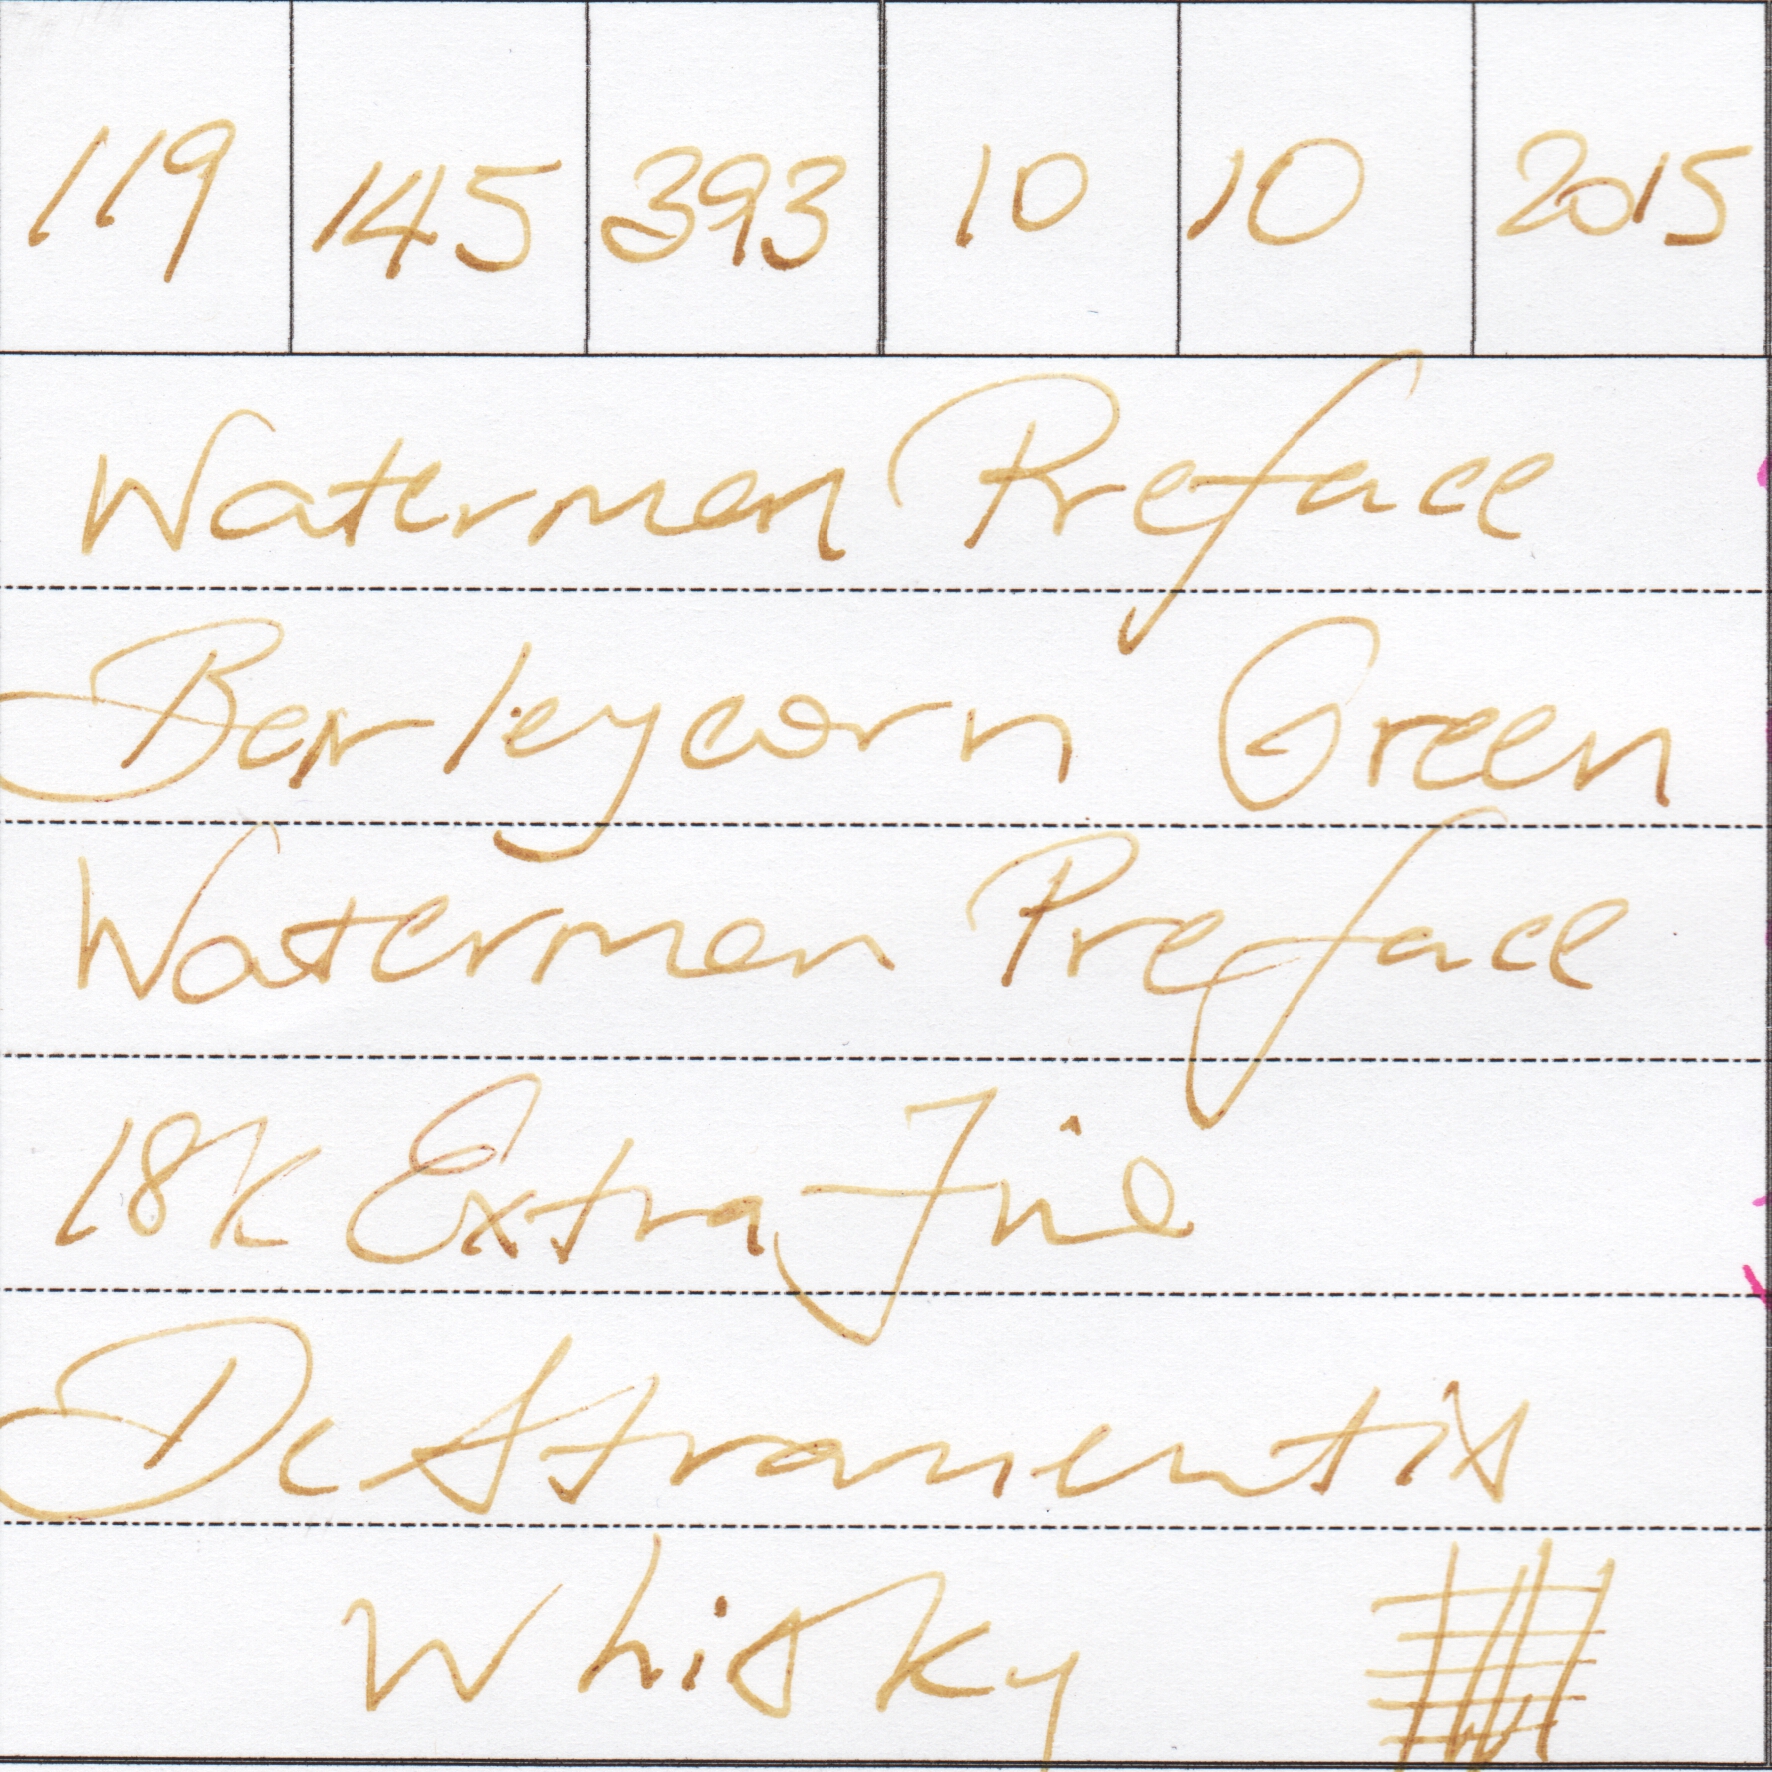 119 145 393 10 10 2015
Waterman Preface
Barleycorn Green
Waterman Preface
18K Extra Fine
De Atramentis
Whisky